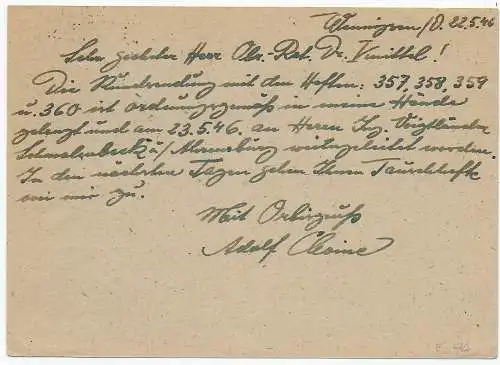 Wennigsen/D. 22.5.46
Sehr geehrter Herr Obr. Rat. Dr.
Die Rundsendung mit den Heften: 357, 358, 359
u. 360 ist ordnungsgemäß in meine Hände
gelangt und am 23.5.46. an Herrn Ing. Voigtländer
Schmalenbeck ü/ Ahrensburg weitergeleitet worden.
In den nächsten Tagen gehen Ihnen Tauschhefte
von mir zu.
Mit
Adolf